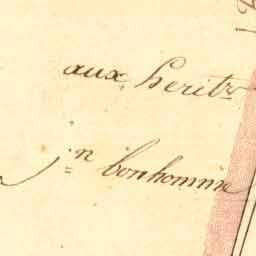 aux heritrs
jn bonhomme